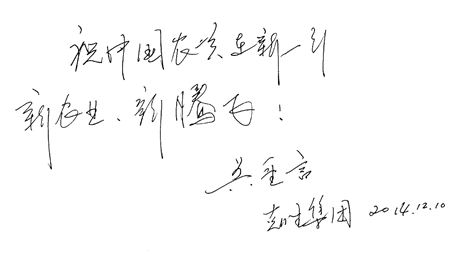 祝中国农资 新一
新农业、新腾飞!
吴 言
集团 2014.12.10